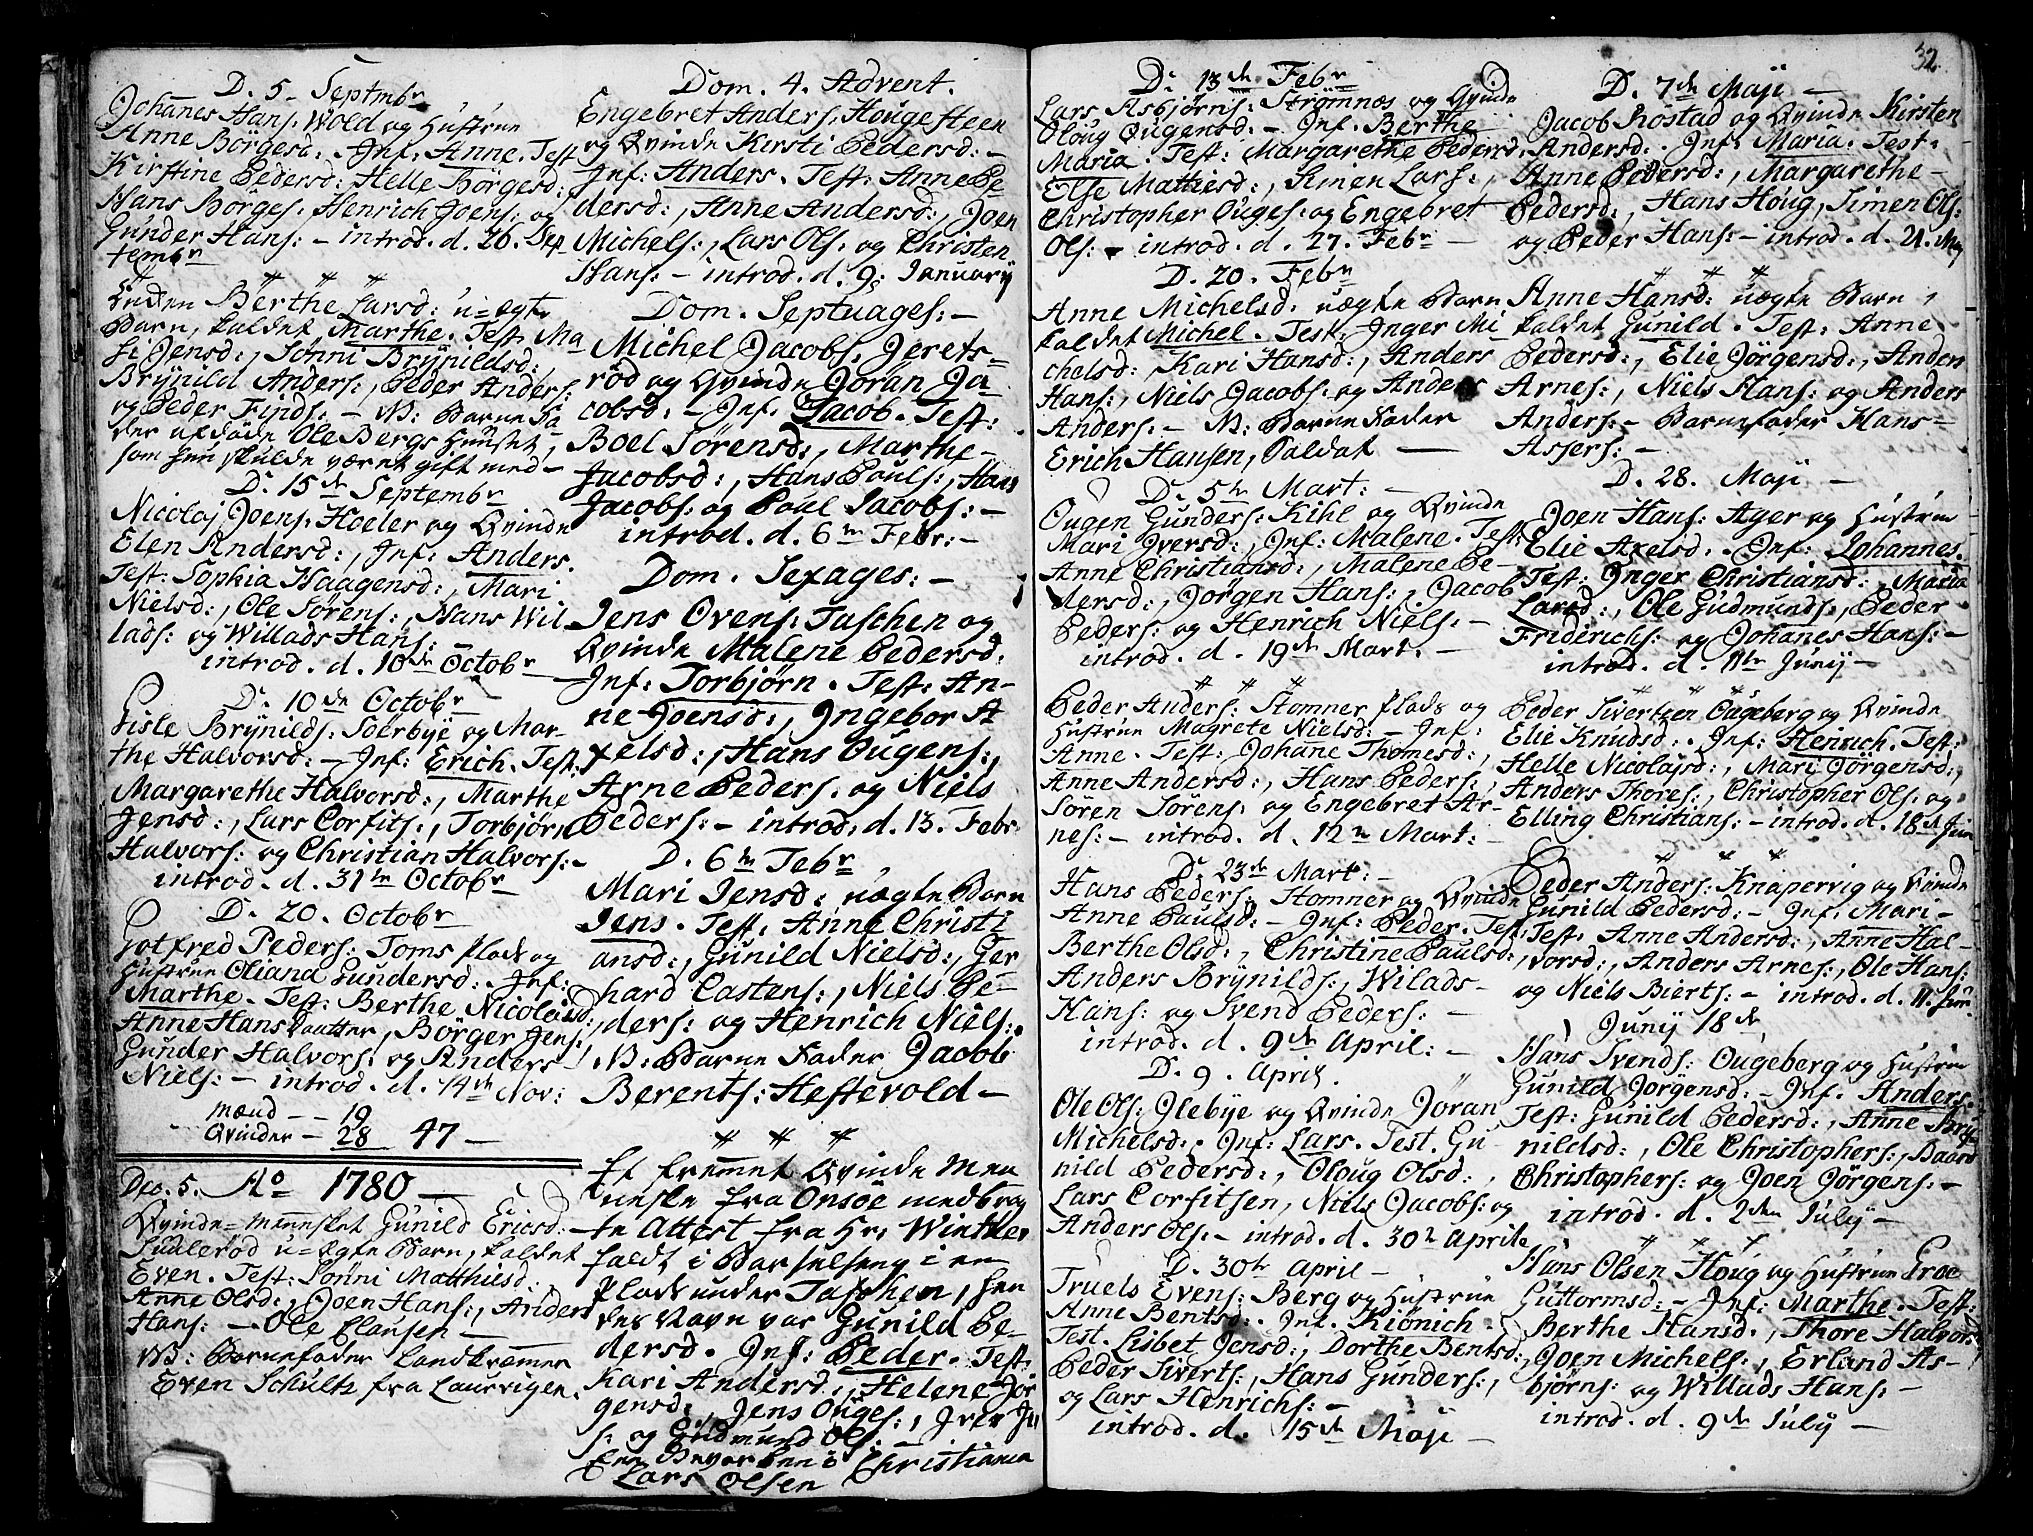 D. 5. Septembr
Johanes Hans: Wold og Hustrue
Anne Börgesd: Inf: Anne. Test
Kirstine Pedersd: Helle Börgesd:
Hans Borges: Henrich Joens: og
Gunder Hans: – introd. d. 26. Sep
tembr
Enken Berthe Larsd: u=ægte
Barn, kaldet Marthe. Test. Ma
si Jensd:, Sönni Brÿnildsd:
Brÿnild Anders:, Peder Anders:
og Peder Finds: – NB: Barne Fa
der afdöde Ole Bergs Huuset,
som hun skulde været gift med –
D. 15de Septembr
Nicolaj Joens: Hoeler og Qvinde
Elen Andersd:, Inf: Anders.
Test: Sophia Haagensd:, Mari
Nielsd:, Ole Sörens:, Hans Wil
lads: og Willads Hans:
introd. d. 10de Octobr
D. 10de Octobr
Gisle Brÿnilds: Soerbÿe og Mar-
the Halvorsd: – Inf: Erich. Test:
Margarethe Halvorsd:, Marthe
Jensd:, Lars Corfits:, Torbjörn
Halvors: og Christian Halvors: –
introd. d. 31te Octobr
D. 20. Octobr
Gotfred Peders: Toms plads og
Hustrue Oliana Gundersd: Inf:
Marthe. Test: Berthe Nicolaisd:
Anne Hans Daatter, Börger Jens:
Gunder Halvors: og Anders
Niels: – introd. d. 14de Nov:
Mænd – – 19
Qvinder – 28 47 –
Dec. 5. Ao 1780 –
Qvinde=Mennesket Gunild Ericsd:
u=ægte Barn, kaldet
Even. Test: Sönni Matthiesd:,
Anne Olsd:, Joen Hans:, Anders
Hans: – Ole Clausen –
NB: Barnefader Landkræmer
Even Schultz fra Laurvigen.
Dom. 4. Advent.
Engebret Anders: Hougesteen
og Qvinde Kirsti Pedersd: –
Inf: Anders. Test: Anne Pe
dersd:, Anne Andersd:, Joen
Michels:, Lars Ols: og Christen
Hans: – introd. d. 9: Januarÿ
Dom. Septuages: –
Michel Jacobs: Jerets-
röd og Qvinde Joran Ja-
cobsd: – Inf: Jacob. Test:
Boel Sörensd:, Marthe
Jacobsd:, Hans Pouls:, Hans
Jacobs: og Poul Jacobs: –
introd. d. 6te Febr: –
Dom. Sexages: –
Jens Ovens: Taschen og
Qvinde Malene Pedersd:
Inf: Torbjörn. Test: An-
ne Joensd:, Ingebor A
xelsd:, Hans Ougens:,
Arne Peders: og Niels
Peders: – introd. d. 13. Febr:
D. 6te Febr
Mari Jensd: uægte Barn
Jens. Test. Anne Christi
ansd:, Gunild Nielsd:, Ger
hard Castens:, Niels Pe-
ders: og Henrich Niels:
NB: Barne Fader Jacob
Berents: Heftevold –
Et fremmet Qvinde Men
neske fra Onsöe medbrag
te Attest fra Hr. Winther
faldt i Barselseng i en
Plads under Taschen, hen
des Navn var Gunild Pe-
dersd. Inf: Peder. Test:
Kari Andersd:, Helene Jör
gensd:, Jens Ouges:, Iver
s: og Gudmund Ols:
i Christiania
Lars Olsen
D. 13de Febr
Lars Asbjörns: Strömnæs og Qvinde
Oloug Ougensd: – Inf: Berthe
Maria. Test: Margarethe Pedersd.
Else Mathiesd:, Simen Lars:,
Christopher Ouges: og Engebret
Ols: – introd. d. 27. Febr –
D. 20. Febr
Anne Michelsd: uægte Barn
kaldet Michel. Test: Inger Mi
chelsd:, Kari Hansd:, Anders
Hans:, Niels Jacobs: og Anders
Anders: – NB: Barne Fader
Erich Hansen, kaldet –
D. 5te Mart: –
Ougen Gunders: Kihl og Qvinde
Mari Iversd:, Inf: Malene. Test:
Anne Christiansd:, Malene Pe-
dersd:, Jörgen Hans:, Jacob
Peders: og Henrich Niels: –
introd. d. 19de Mart: –
Peder Anders: Stomner plads og
Hustrue Magrete Nielsd: – Inf:
Anne. Test: Johane Thomesd:,
Anne Andersd:, Hans Peders:,
Sören Sörens: og Engebret Ar-
nes: – introd. d. 12te Mart: –
D. 23de Mart: –
Hans Peders: Stomner og Qvinde
Anne Paulsd: – Inf: Peder. Test:
Berthe Olsd:, Christine Paulsd:,
Anders Brÿnilds:, Wilads
Hans: og Svend Peders: –
introd. d. 9de April: –
D. 9. April.
Ole Ols: Glebÿe og Qvinde Jöran
Michelsd: Inf: Lars. Test. Gu-
nild Pedersd:, Oloug Olsd:,
Lars Corfitsen, Niels Jacobs: og
Anders Ols: – introd. d. 30te Aprile
D. 30te April –
Truels Evens: Berg og Hustrue
Anne Bentsd: Inf. Kiönich.
Test. Lisbet Jensd:, Dorthe Bentsd:,
Peder Siverts:, Hans Gunders:,
og Lars Henrichs: –
introd. d. 15de Maji –
32
D. 7de Maji –
Jacob Rostad og Qvinde Kirsten
Andersd: Inf: Maria. Test:
Anne Pedersd:, Margarethe
Pedersd:, Hans Houg, Simen Ols:
og Peder Hans: – introd. d. 21. Maj
Anne Hansd: uægte Barn,
kaldet Gunild. Test: Anne
Pedersd:, Elie Jörgensd:, Anders
Arnes:, Niels Hans: og Anders
Anders: – Barnefader Hans
Asjers: –
D. 28. Maji –
Joen Hans: Ager og Hustrue
Elie Axelsd: Inf: Johannes.
Test: Inger Christiansd:, Maria
Larsd:, Ole Gudmunds:, Peder
Friderichs: og Johanes Hans: –
introd. d. 11te Junÿ –
Peder Sivertzen Ougeberg og Qvinde
Elie Knudsd: Inf: Henrich. Test:
Helle Nicolajsd:, Mari Jörgensd:,
Anders Thores:, Christopher Ols: og
Elling Christians: – introd. d. 18de Jun
Peder Anders: Knapervig og Qvinde
Gunild Pedersd: – Inf: Mari –
Test: Anne Andersd:, Anne Hal-
vorsd:, Anders Arnes:, Ole Hans:
og Niels Bierts: – introd. d. 11. Jun:
Junÿ 18de
Hans Svends: Ougeberg og Hustrue
Gunild Jorgensd: – Inf: Anders.
Test: Gunild Pedersd:, Anne Brÿ-
nildsd:, Ole Christophers:, Baard
Christophers: og Joen Jörgens: –
introd. d. 2den Julÿ –
Hans Olsen Houg og Hustrue
Guttormsd: – Inf: Marthe. Test:
Berthe Hansd:, Thore Halvors:,
Joen Michels:, Erland As-
björns: og Willads Hans: –
introd. d. 9de Julÿ –